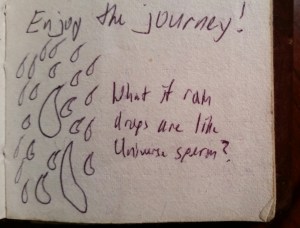 Enjoy the journey!
What if rain
drops are like
Universe sperm?